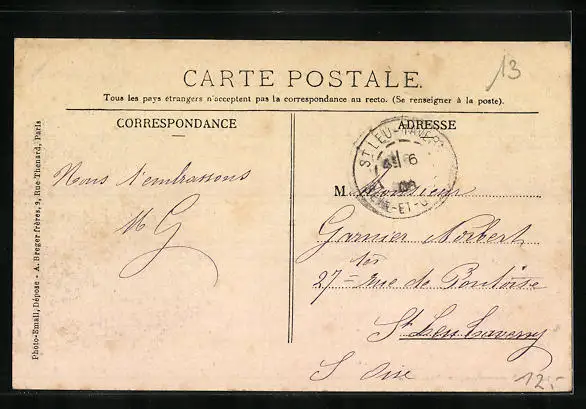 13
CARTE POSTALE.
Tous les pays étrangers n'acceptent pas la correspondance au recto. (Se renseigner à la poste).
CORRESPONDANCE
ADRESSE
Nous t'embrassons
M G
ST LEU-TAVERNY
6
SEINE-ET-OISE
M. Monsieur
Garnier Norbert
27 ter rue de Pontoise
St Leu Taverny
S Oise
12.-
Photo-Email, Déposé - A. Breger frères, 9, Rue Thenard, Paris